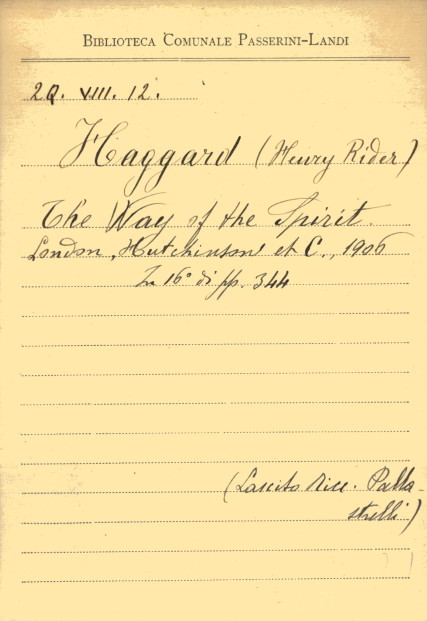 BIBLIOTECA COMUNALE PASSERINI-LANDI
2Q. VIII. 12.
Haggard (Henry Rider)
The Way of the Spirit.
London, Hutchinson et C., 1906
In 16° di pp. 344
(Lascito Picc. Palla-
strelli)